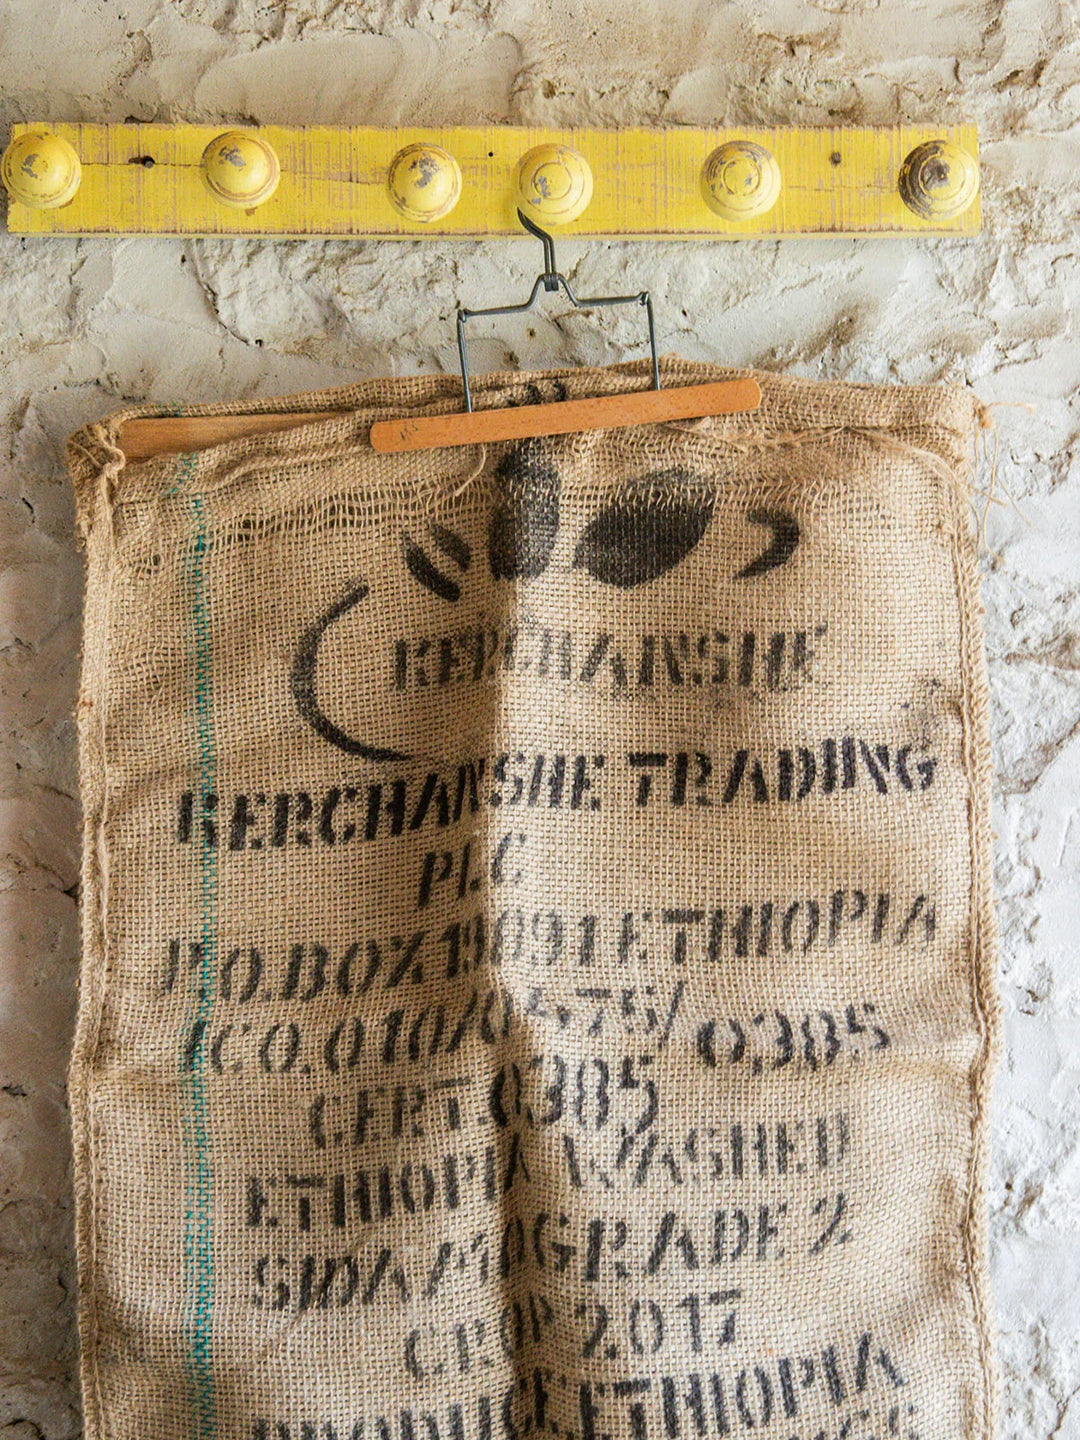 KERCHANSHE
KERCHANSHE TRADING
PLC
P.O.BOX 13091 ETHIOPIA
ICO.010/0475/0385
CERT.0385
ETHIOPIA WASHED
GRADE 2
CROP 2017
PRODUCE ETHIOPIA